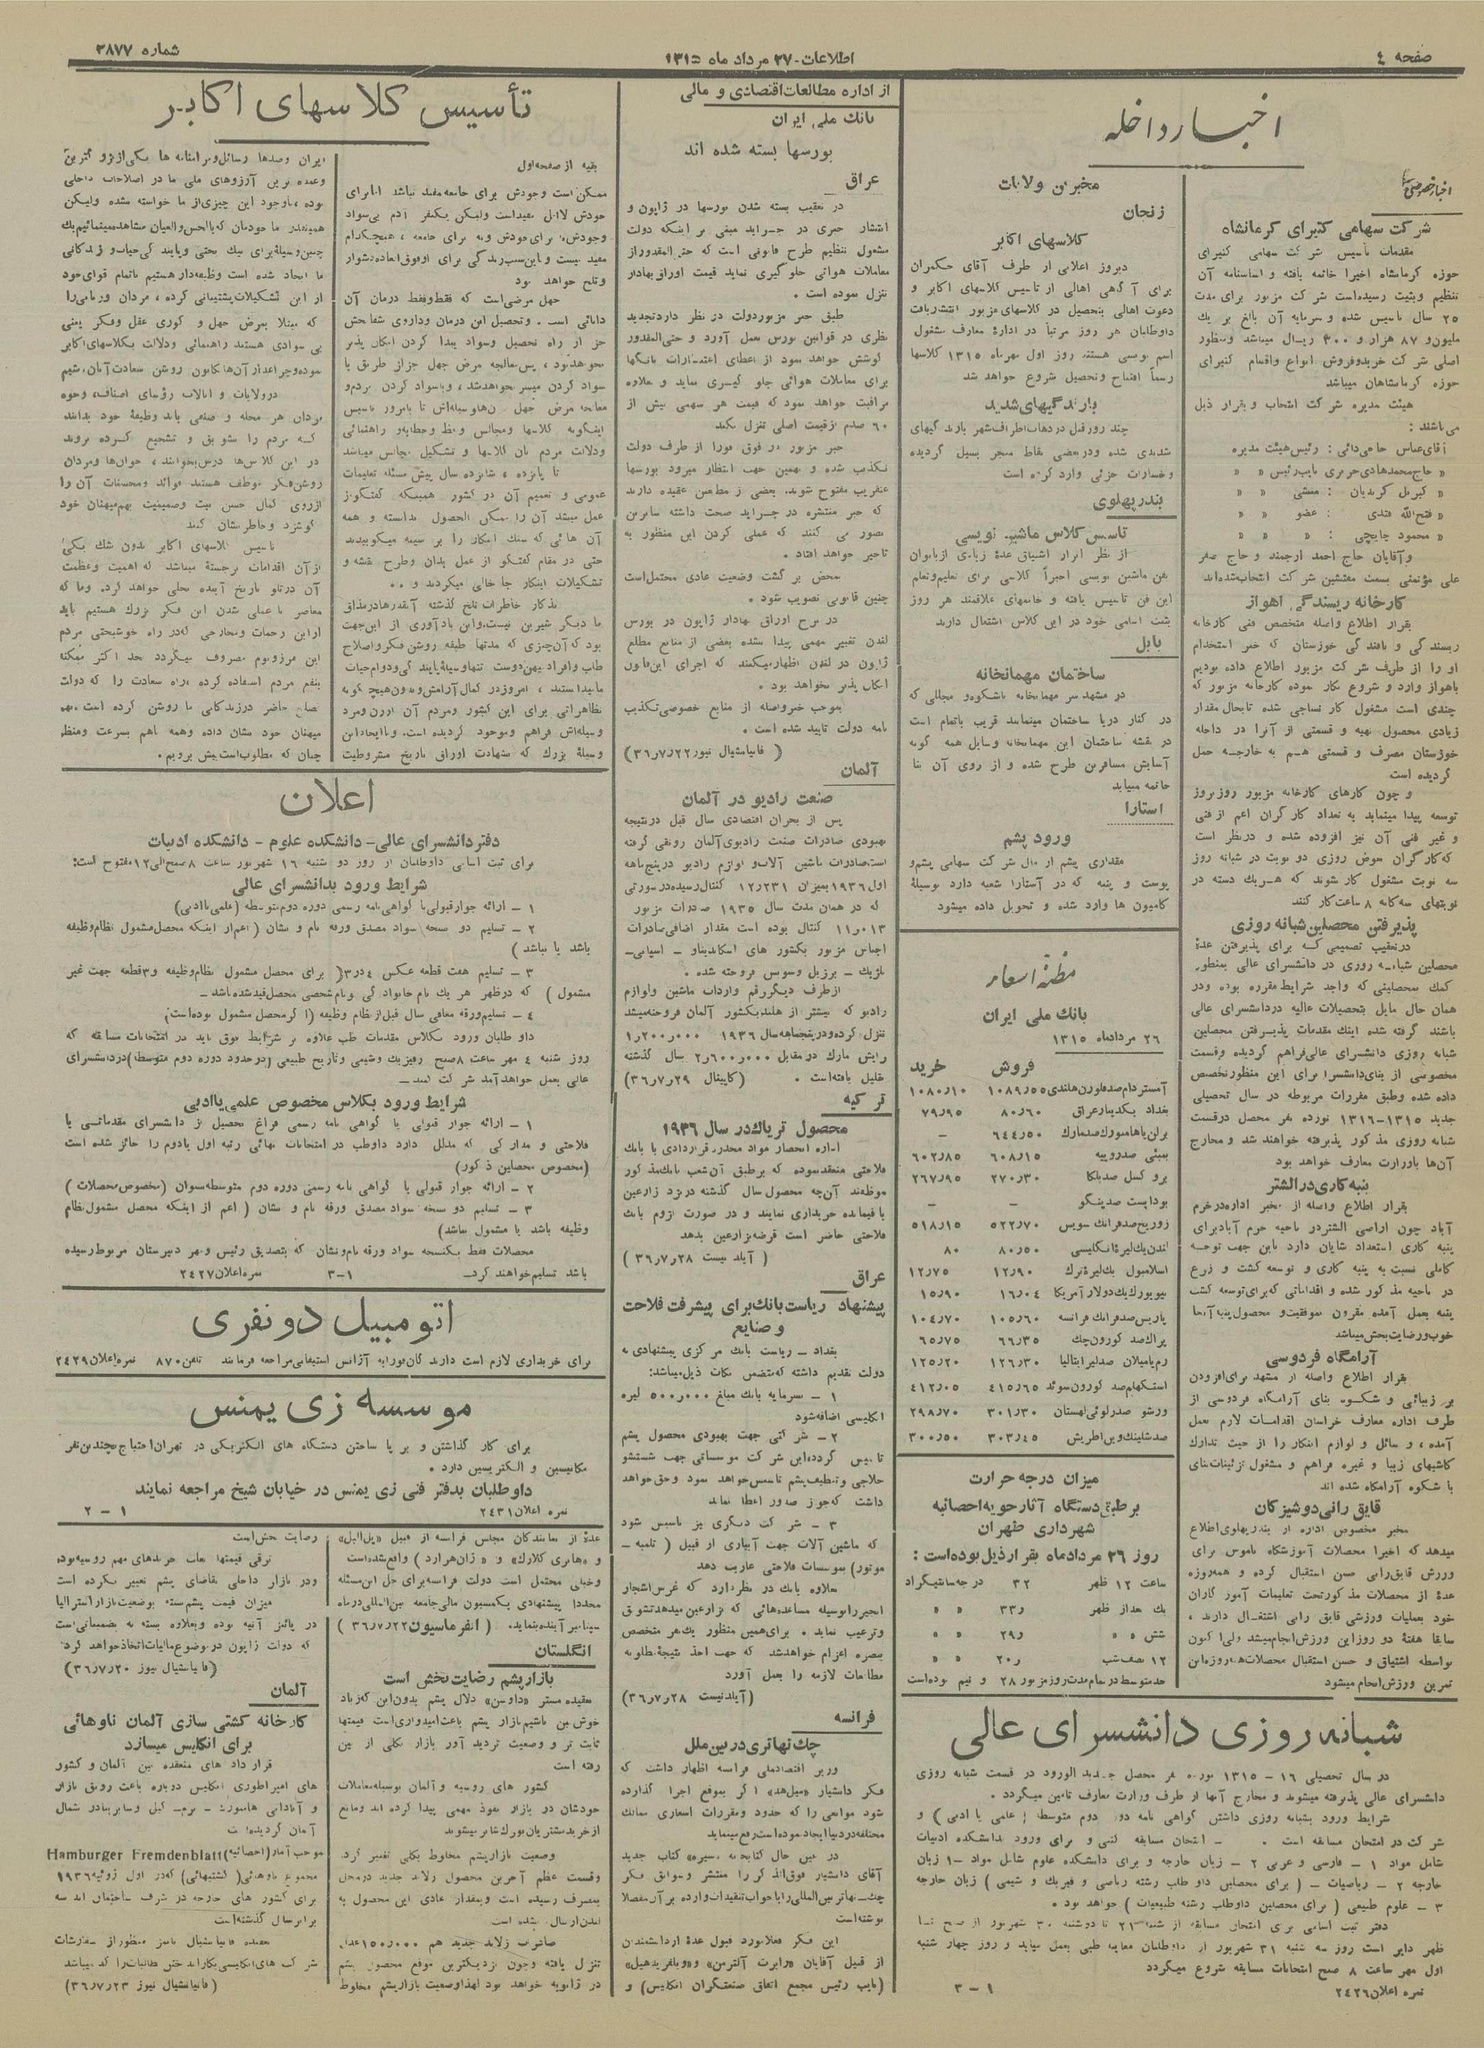 صفحه ٤
اطلاعات - ۲۷ مرداد ماه ۱۳۱۵
شماره ۳۸۷۷
اخبار داخله
اخبار خصوصی
شرکت سهامی کتیرای کرمانشاه
مقدمات تأسیس شرکت سهامی کتیرای
حوزه کرمانشاه اخیراً خاتمه یافته و اساسنامه آن
تنظیم و بثبت رسیده است شرکت مزبور برای مدت
۲۵ سال تاسیس شده و سرمایه آن بالغ بر یک
ملیون و ۸۷ هزار و ۴۰۰ ریال میباشد و منظور
اصلی شرکت خرید و فروش انواع و اقسام کتیرای
حوزه کرمانشاهان میباشد
هیئت مدیره شرکت انتخاب و بقرار ذیل
می باشند :
آقای عباس حاجی دائی : رئیس هیئت مدیره
« حاج محمد هادی حریری نایب رئیس « «
« : منشی « «
« فتح الله : عضو « «
« محمود چایچی : « « «
و آقایان حاج احمد ارجمند و حاج صفر
علی مؤتمنی بسمت مفتشین شرکت انتخاب شده اند
کارخانه ریسندگی اهواز
بقرار اطلاع واصله متخصص فنی کارخانه
ریسندگی و بافندگی خوزستان که خبر استخدام
او را از طرف شرکت مزبور اطلاع داده بودیم
باهواز وارد و شروع بکار نموده کارخانه مزبور که
چندی است مشغول کار نساجی شده تا بحال مقدار
زیادی محصول تهیه و قسمتی از آنرا در داخله
خوزستان مصرف و قسمتی هم به خارجه حمل
گردیده است
و چون کارهای کارخانه مزبور روز بروز
توسعه پیدا مینماید به تعداد کارگران اعم از فنی
و غیر فنی آن نیز افزوده شده و در نظر است
که کارگران عوض روزی دو نوبت در شبانه روز
سه نوبت مشغول کار شوند که هر یک دسته در
نوبتهای سه گانه ۸ ساعت کار کنند
پذیرفتن محصلین شبانه روزی
در تعقیب تصمیمی که برای پذیرفتن عدهٔ
محصلین شبانه روزی در دانشسرای عالی بمنظور
کمک بمحصلینی که واجد شرایط مقرره بوده و در
همان حال مایل بتحصیلات عالیه در دانشسرای عالی
باشند گرفته شده اینک مقدمات پذیرفتن محصلین
شبانه روزی دانشسرای عالی فراهم گردیده و قسمت
مخصوصی از بنای دانشسرا برای این منظور تخصیص
داده شده و طبق مقررات مربوطه در سال تحصیلی
جدید ۱۳۱۵-۱۳۱۶ نوزده نفر محصل در قسمت
شبانه روزی مذکور پذیرفته خواهند شد و مخارج
آن ها با وزارت معارف خواهد بود
پنبه کاری در الشتر
بقرار اطلاع واصله از مخبر اداره در خرم
آباد چون اراضی الشتر در ناحیه خرم آباد برای
پنبه کاری استعداد شایان دارد باین جهت توجه
کاملی نسبت به پنبه کاری و توسعه کشت و زرع
در ناحیه مذکور شده و اقداماتی که برای توسعه کشت
پنبه بعمل آمده مقرون بموفقیت و محصول پنبه آنجا
خوب و رضایت بخش میباشد
آرامگاه فردوسی
بقرار اطلاع واصله از مشهد برای افزودن
بر زیبائی و شکوه بنای آرامگاه فردوسی از
طرف اداره معارف خراسان اقدامات لازم بعمل
آمده ، وسائل و لوازم ابتکار را از حیث تدارک
کاشیهای زیبا و غیره فراهم و مشغول تزئینات بنای
با شکوه آرامگاه شده اند
قایق رانی دوشیزگان
مخبر مخصوص اداره از بندر پهلوی اطلاع
میدهد که اخیراً محصلات آموزشگاه ناموس برای
ورزش قایق رانی حسن استقبال کرده و همه روزه
عدهٔ از محصلات مذکور تحت تعلیمات آموزگاران
خود بعملیات ورزشی قایق رانی اشتغال دارند ،
سابقاً هفتهٔ دو روز این ورزش انجام میشد ولی اکنون
بواسطه اشتیاق و حسن استقبال محصلات همه روزه این
تمرین ورزش انجام میشود
مخبرین ولایات
زنجان
کلاسهای اکابر
دیروز اعلانی از طرف آقای حکمران
برای آگهی اهالی از تاسیس کلاسهای اکابر و
دعوت اهالی بتحصیل در کلاسهای مزبور انتشار یافت
داوطلبان هر روز مرتباً در ادارهٔ معارف مشغول
اسم نویسی هستند روز اول مهر ماه ۱۳۱۵ کلاسها
رسماً افتتاح و تحصیل شروع خواهد شد
بارندگیهای شدید
چند روز قبل در دهات اطراف شهر بارندگیهای
شدیدی شده و در بعضی نقاط منجر بسیل گردیده
و خسارات جزئی وارد کرده است
بندر پهلوی
تاسیس کلاس ماشین نویسی
از نظر ابراز اشتیاق عدهٔ زیادی از بانوان
بفن ماشین نویسی اخیراً کلاسی برای تعلیم و تعلم
این فن تاسیس یافته و خانمهای علاقمند هر روز
بثبت اسامی خود در این کلاس اشتغال دارند
بابل
ساختمان مهمانخانه
در مشهد سر مهمانخانه باشکوه و مجللی که
در کنار دریا ساختمان مینمایند قریب باتمام است
در نقشه ساختمان این مهمانخانه وسایل همه گونه
آسایش مسافرین طرح شده و از روی آن بنا
خاتمه میابد
آستارا
ورود پشم
مقداری پشم از مال شرکت سهامی پشم و
پوست و پنبه که در آستارا شعبه دارد بوسیلهٔ
کامیون ها وارد شده و تحویل داده میشود
مظنهٔ اسعار
بانک ملی ایران
۲۶ مرداد ماه ۱۳۱۵
فروش خرید
آمستردام صد فلورن هلندی ۱۰۸۹٫۵۵ ۱۰۸۰٫۱۰
بغداد یکدینار عراق ۸۰٫۶۰ ۷۹٫۹۵
برلن یا هامبورک صد مارک ۶۴۴٫۵۰ –
بمبئی صد روپیه ۶۰۸٫۱۵ ۶۰۲٫۸۵
بروکسل صد بلکا ۲۷۰٫۳۰ ۲۶۷٫۹۵
بوداپست صد پنگو – –
زوریخ صد فرانک سویس ۵۲۲٫۷۰ ۵۱۸٫۱۵
لندن یک لیرهٔ انگلیسی ۸۰٫۵۰ ۸۰
اسلامبول یک لیرهٔ ترک ۱۲٫۹۰ ۱۲٫۷۵
نیویورک یک دولار آمریکا ۱۶٫۰۴ ۱۵٫۹۰
پاریس صد فرانک فرانسه ۱۰۵٫۶۰ ۱۰۴٫۷۰
پراک صد کورون چک ۶۶٫۳۵ ۶۵٫۷۵
رم یا میلان صد لیر ایتالیا ۱۲۶٫۳۰ ۱۲۵٫۲۰
استکهلم صد کورون سوئد ۴۱۵٫۶۵ ۴۱۲٫۰۵
ورشو صد زلوتی لهستان ۳۰۱٫۳۰ ۲۹۸٫۷۰
صد شلینک وین اطریش ۳۰۳٫۴۵ ۳۰۰٫۵۰
میزان درجه حرارت
بر طبق دستگاه آثار جویه احصائیه
شهرداری طهران
روز ۲۶ مرداد ماه بقرار ذیل بوده است :
ساعت ۱۲ ظهر ۳۲ درجه سانتیگراد
یک بعد از ظهر ۳۳٫ « «
شش « « ۲۹٫ « «
۱۲ نصف شب ۲۰٫ « «
حد متوسط در تمام مدت روز مزبور ۲۸ و نیم بوده است
شبانه روزی دانشسرای عالی
در سال تحصیلی ۱۶ - ۱۳۱۵ نوزده نفر محصل جدید الورود در قسمت شبانه روزی
دانشسرای عالی پذیرفته میشوند و مخارج آنها از طرف وزارت معارف تامین میگردد .
شرایط ورود بشبانه روزی داشتن گواهی نامه دوره دوم متوسطه ( علمی یا ادبی ) و
شرکت در امتحان مسابقه است . – امتحان مسابقه کتبی و برای ورود بدانشکده ادبیات
شامل مواد ۱ – فارسی و عربی ۲ – زبان خارجه و برای دانشکده علوم شامل مواد ۱– زبان
خارجه ۲ – ریاضیات – ( برای محصلین داوطلب رشته ریاضی و فیزیک و شیمی ) زبان خارجه
۳ – علوم طبیعی ( برای محصلین داوطلب رشته طبیعیات ) خواهد بود .
دفتر ثبت اسامی برای امتحان مسابقه از شنبه ۲۱ تا دوشنبه ۳۰ شهریور از صبح تا
ظهر دایر است روز سه شنبه ۳۱ شهریور از داوطلبان معاینه طبی بعمل میاید و روز چهار شنبه
اول مهر ساعت ۸ صبح امتحانات مسابقه شروع میگردد
نمره اعلان ۲۴۲۶ ۱ – ۳
از اداره مطالعات اقتصادی و مالی
بانک ملی ایران
بورسها بسته شده اند
عراق
در تعقیب بسته شدن بورسها در ژاپون و
انتشار خبری در جراید مبنی بر اینکه دولت
مشغول تنظیم طرح قانونی است که حتی المقدور از
معاملات هوائی جلوگیری نماید قیمت اوراق بهادار
تنزل نموده است .
طبق خبر مزبور دولت در نظر دارد تجدید
نظری در قوانین بورس بعمل آورد و حتی المقدور
کوشش خواهد نمود از اعطای اعتبارات بانکها
برای معاملات هوائی جلوگیری نماید و علاوه
مراقبت خواهد نمود که قیمت هر سهمی بیش از
۶۰ صدم از قیمت اصلی تنزل نکند
خبر مزبور در فوق فوراً از طرف دولت
تکذیب شده و بهمین جهت انتظار میرود بورسها
عنقریب مفتوح شوند. بعضی از مطلعین عقیده دارند
که خبر منتشره در جراید صحت داشته سایرین
تصور می کنند که عملی کردن این منظور به
تاخیر خواهد افتاد .
بمحض برگشت وضعیت عادی محتمل است
چنین قانونی تصویب شود .
در نرخ اوراق بهادار ژاپون در بورس
لندن تغییر مهمی پیدا نشده بعضی از منابع مطلع
ژاپون در لندن اظهار میکنند که اجرای این قانون
امکان پذیر نخواهد بود .
بموجب خبر واصله از منابع خصوصی تکذیب
نامه دولت تایید شده است .
( فاینانشیال نیوز ۳۶٫۷٫۲۲ )
آلمان
صنعت رادیو در آلمان
پس از بحران اقتصادی سال قبل در نتیجه
بهبودی صادرات صنعت رادیوی آلمان رونقی گرفته
است صادرات ماشین آلات و لوازم رادیو در پنج ماهه
اول ۱۹۳۶ بمیزان ۱۲٫۲۳۱ کنتال رسیده در صورتی
که در همان مدت سال ۱۹۳۵ صادرات مزبور
۱۱٫۰۱۳ کنتال بوده است مقدار اضافی صادرات
اجناس مزبور بکشور های اسکاندیناو – اسپانی –
بلژیک – برزیل و سویس فروخته شده .
از طرف دیگر رقم واردات ماشین و لوازم
رادیو که بیشتر از هلند بکشور آلمان فروخته میشد
تنزل کرده و در پنجماهه سال ۱۹۳۶ ۱٫۲۰۰٫۰۰۰
رایش مارک در مقابل ۲٫۶۰۰٫۰۰۰ سال گذشته
تقلیل یافته است . ( کاپیتال ۳۶٫۷٫۲۹ )
ترکیه
محصول تریاک در سال ۱۹۳۶
اداره انحصار مواد مخدره قراردادی با بانک
فلاحتی منعقد نموده که بر طبق آن شعب بانک مذکور
موظفند آن چه محصول سال گذشته در نزد زارعین
باقیمانده خریداری نمایند و در صورت لزوم بانک
فلاحتی حاضر است قرضه بزارعین بدهد
( آیلد نیست ۳۶٫۷٫۲۸ )
عراق
پیشنهاد ریاست بانک برای پیشرفت فلاحت
و صنایع
بغداد – ریاست بانک مرکزی پیشنهادی به
دولت تقدیم داشته که متضمن نکات ذیل میباشد :
۱ – سرمایه بانک مبلغ ۵۰۰٫۰۰۰ لیره
انگلیسی اضافه شود
۲ – شرکتی جهت بهبودی محصول پشم
تاسیس گردد، این شرکت موسساتی جهت شستشو
حلاجی و تنظیف پشم تاسیس خواهد نمود و حق خواهد
داشت که جواز صدور اعطا نماید
۳ – شرکت دیگری نیز تاسیس شود
که ماشین آلات جهت آبیاری از قبیل ( تلمبه –
موتور ) بموسسات فلاحتی عاریت دهد
علاوه بانک در نظر دارد که غرس اشجار
انجیر را بوسیله مساعده هائی که بزارعین میدهد تشویق
و ترغیب نماید . برای همین منظور یک نفر متخصص
ببصره اعزام خواهد شد که جهت اخذ نتیجهٔ مطلوبه
مطالعات لازمه را بعمل آورد
( آیلد نیست ۳۶٫۷٫۲۸ )
فرانسه
چک تهاتری در بین ملل
وزیر اقتصاد ملی فرانسه اظهار داشت که
فکر دانشیار اگر بموقع اجرا گذارده
شود موانعی را که حدود و مقررات اسعاری ممالک
مختلفه در دنیا ایجاد نموده است رفع مینماید
در عین حال کتابخانه کتاب جدید
آقای دانشیار فوق الذکر را منتشر و سوابق فکر
چک تهاتر بین المللی را با جواب تنقیدات وارده بر آن مفصلا
نوشته است
این فکر فعلا مورد قبول عدهٔ از دانشمندان
از قبیل آقایان «رابرت آلترمن» و
(نایب رئیس مجمع اتفاق صنعتگران انگلیس) و
عدهٔ از نمایندگان مجلس فرانسه از قبیل
و «هانری کلارک» و واقع شده است
و خیلی محتمل است دولت فرانسه برای حل این مسئله
مجدداً پیشنهادی بکمسیون مالی جامعه بین المللی در ماه
سپتامبر آینده بنماید. ( انفرماسیون ۳۶٫۷٫۲۲ )
انگلستان
بازار پشم رضایت بخش است
بعقیده مستر «داوسن» دلال پشم بدون این که زیاد
خوش بین باشیم بازار پشم باعث امیدواری است قیمتها
ثابت تر و وضعیت تردید آور بازار بکلی از بین
رفته است
کشور های روسیه و آلمان بوسیله معاملات
خودشان در بازار نفوذ مهمی پیدا کرده اند و مانع
از خرید مشتریان بزرک سایر میشوند
وضعیت بازار پشم مخلوط بکلی تغییر کرد.
و قسمت عظم آخرین محصول زلاند جدید در محل
بمصرف رسیده است و بمقدار عادی این محصول به
لندن ارسال نشده است
صادرات زلاند جدید هم ۱۵۰٫۰۰۰ عدل
تنزل یافته و چون نزدیکترین موقع محصول پشم
در ژانویه خواهد بود لهذا وضعیت بازار پشم مخلوط
رضایت بخش است
ترقی قیمتها بعلت خریدهای مهم روسیه بوده
و در بازار داخلی تقاضای پشم تغییر نکرده است
میزان قیمت پشم بسته بوضعیت بازار استرالیا
در پائیز آتیه بوده و بعلاوه بسته به تصمیماتی است
که دولت ژاپون در موضوع مالیات اتخاذ خواهد کرد
( فاینانشیال نیوز ۳۶٫۷٫۲۰ )
آلمان
کارخانه کشتی سازی آلمان ناوهائی
برای انگلیس میسازد
قرار داد های منعقده بین آلمان و کشور
های امپراطوری انگلیس دوباره باعث رونق بازار
و آبادانی هامبورک – برم – کیل و سایر بنادر شمال
آلمان گردیده است
بموجب آمار (احصائیه) Hamburger Fremdenblatt
مجموع ناوهائی (کشتیهائی) که در اول ژوئیه ۱۹۳۶
برای کشور های خارجه در شرف ساختمان اند سه
برابر سال گذشته است
بعقیده فاینانشیال تایمز منظور از سفارشات
شرکت های انگلیسی بکار انداختن مطالبات را کد میباشد
( فاینانشیال نیوز ۳۶٫۷٫۲۳ )
تأسیس کلاسهای اکابر
بقیه از صفحه اول
ممکن است وجودش برای جامعه مفید نباشد اما برای
خودش لااقل مفید است ولیکن یکنفر آدم بی سواد
وجودش نه برای خودش و نه برای جامعه ، هیچکدام
مفید نیست و باین سبب زندگی برای او فوق العاده دشوار
و تلخ خواهد بود
جهل مرضی است که فقط و فقط درمان آن
دانائی است . و تحصیل این درمان و داروی شفابخش
جز از راه تحصیل و سواد پیدا کردن امکان پذیر
نخواهد بود ، پس معالجه مرض جهل جز از طریق با
سواد کردن میسر نخواهد شد، و باسواد کردن مردم و
معالجه مرض جهل آن ها وسیله اش تا بامروز تاسیس
اینگونه کلاسها و مجالس وعظ و خطابه و راهنمائی
و دلالت مردم بآن کلاسها و تشکیل مجالس میباشد
تا پانزده ، شانزده سال پیش مسئله تعلیمات
عمومی و تعمیم آن در کشور همینکه گفتگو از
عمل میشد آن را ممکن الحصول ندانسته و همه
آن هائی که سنک ابتکار را بر سینه میکوبیدند
حتی در مقام گفتگو از عمل بدان و طرح نقشه و
تشکیلات ابتکار جا خالی میکردند و ..
تذکار خاطرات تلخ گذشته آنقدرها در مذاق
ما دیگر شیرین نیست، و این یادآوری از این جهت
بود که آن چیزی که مدتها طبقه روشن فکر و اصلاح
طلب و افراد میهن دوست تنها وسیلهٔ پایندگی و دوام حیات
ما میدانستند ، امروز در کمال آرامش و بدون هیچ گونه
تظاهراتی برای این کشور و مردم آن از زن و مرد
وسیله اش فراهم و موجود گردیده است. و با ایجاد این
وسیلهٔ بزرک که بشهادت اوراق تاریخ مشروطیت
ایران و صدها رسائل و مرامنامه ها یکی از بزرگترین
و عمده ترین آرزوهای ملی ما در اصلاحات داخلی
بوده ، باوجود این چیزی از ما خواسته نشده ولیکن
همینقدر ما خودمان که بالحس والعیان مشاهده مینمائیم یک
چنین وسیلهٔ برای نیک بختی و پایندگی حیات و زندگانی
ما ایجاد شده است وظیفه دار هستیم باتمام قوای خود
از این تشکیلات پشتیبانی کرده ، مردان و زنانی را
که مبتلا بمرض جهل و کوری عقل و فکر یعنی
بی سوادی هستند راهنمائی و دلالت بکلاسهای اکابر
نموده و چراغدار آن ها بکانون روشن سعادت آنان باشیم
در ولایات و ایالات رؤسای اصناف، وجوه
مردان هر محله و صنفی باید وظیفهٔ خود بدانند
که مردم را تشویق و تشجیع کرده بروند
در این کلاس ها درس بخوانند ، جوان ها و مردان
روشن فکر موظف هستند فوائد و محسنات آن را
از روی کمال حسن نیت و صمیمیت بهم میهنان خود
گوشزد و خاطر نشان کنند
تاسیس کلاسهای اکابر بدون شک یکی
از آن اقدامات برجستهٔ میباشد که اهمیت و عظمت
آن در تلو تاریخ آینده تجلی خواهد کرد. و ما که
معاصر با عملی شدن این فکر بزرک هستیم باید
از این زحمات و مخارجی که در راه خوشبختی مردم
این مرز و بوم مصروف میگردد حد اکثر ممکنه
بنفع مردم استفاده کرده ،راه سعادت را که دولت
مصلح حاضر در زندگانی ما روشن کرده است. بهم
میهنان خود نشان داده و همه باهم بسرعت و منظم
چنان که مطلوب است پیش برویم.
اعلان
دفتر دانشسرای عالی – دانشکده علوم – دانشکده ادبیات
برای ثبت اسامی داوطلبان از روز دو شنبه ۱۶ شهریور ساعت ۸ صبح الی ۱۲ مفتوح است:
شرایط ورود بدانشسرای عالی
۱ – ارائه جواز قبولی یا گواهی نامه رسمی دوره دوم متوسطه (علمی یا ادبی)
۲ – تسلیم دو نسخه سواد مصدق ورقه نام و نشان ( اعم از اینکه محصل مشمول نظام وظیفه
باشد یا نباشد )
۳ – تسلیم هفت قطعه عکس ۴ در ۳ ( برای محصل مشمول نظام وظیفه و ۳ قطعه جهت غیر
مشمول ) که در ظهر هر یک نام خانوادگی و نام شخصی محصل قید شده باشد –
۴ – تسلیم ورقه معافی سال قبل از نظام وظیفه (اگر محصل مشمول بوده است)
داوطلبان ورود بکلاس مقدمات طب علاوه بر شرایط فوق باید در امتحانات مسابقه که
روز شنبه ۴ مهر ساعت ۸ صبح از فیزیک و شیمی و تاریخ طبیعی (در حدود دوره دوم متوسطه) در دانشسرای
عالی بعمل خواهد آمد شرکت کنند –
شرایط ورود بکلاس مخصوص علمی یا ادبی
۱ – ارائه جواز قبولی یا گواهی نامه رسمی فراغ تحصیل از دانشسرای مقدماتی یا
فلاحتی و مدارکی که مدلل دارد داوطلب در امتحانات نهائی رتبه اول یا دوم را حائز شده است
(مخصوص محصلین ذکور)
۲ – ارائه جواز قبولی یا گواهی نامه رسمی دوره دوم متوسطه نسوان (مخصوص محصلات )
۳ – تسلیم دو نسخه سواد مصدق ورقه نام و نشان ( اعم از اینکه محصل مشمول نظام
وظیفه باشد یا مشمول نباشد)
محصلات فقط یکنسخه سواد ورقه نام و نشان که بتصدیق رئیس و مهر دبیرستان مربوط رسیده
باشد تسلیم خواهند کرد. ۱–۳ نمره اعلان ۲۴۲۷
اتومبیل دو نفری
برای خریداری لازم است دارندگان فوراً به آژانس استیفانی مراجعه فرمایند تلفن ۸۷۰ نمره اعلان ۲۴۲۹
موسسه زی یمنس
برای کار گذاشتن و بر پا ساختن دستگاه های الکتریکی در تهران احتیاج بچندین نفر
مکانیسین و الکتریسین دارد .
داوطلبان بدفتر فنی زی یمنس در خیابان شیخ مراجعه نمایند
نمره اعلان ۲۴۳۱ ۱ – ۲